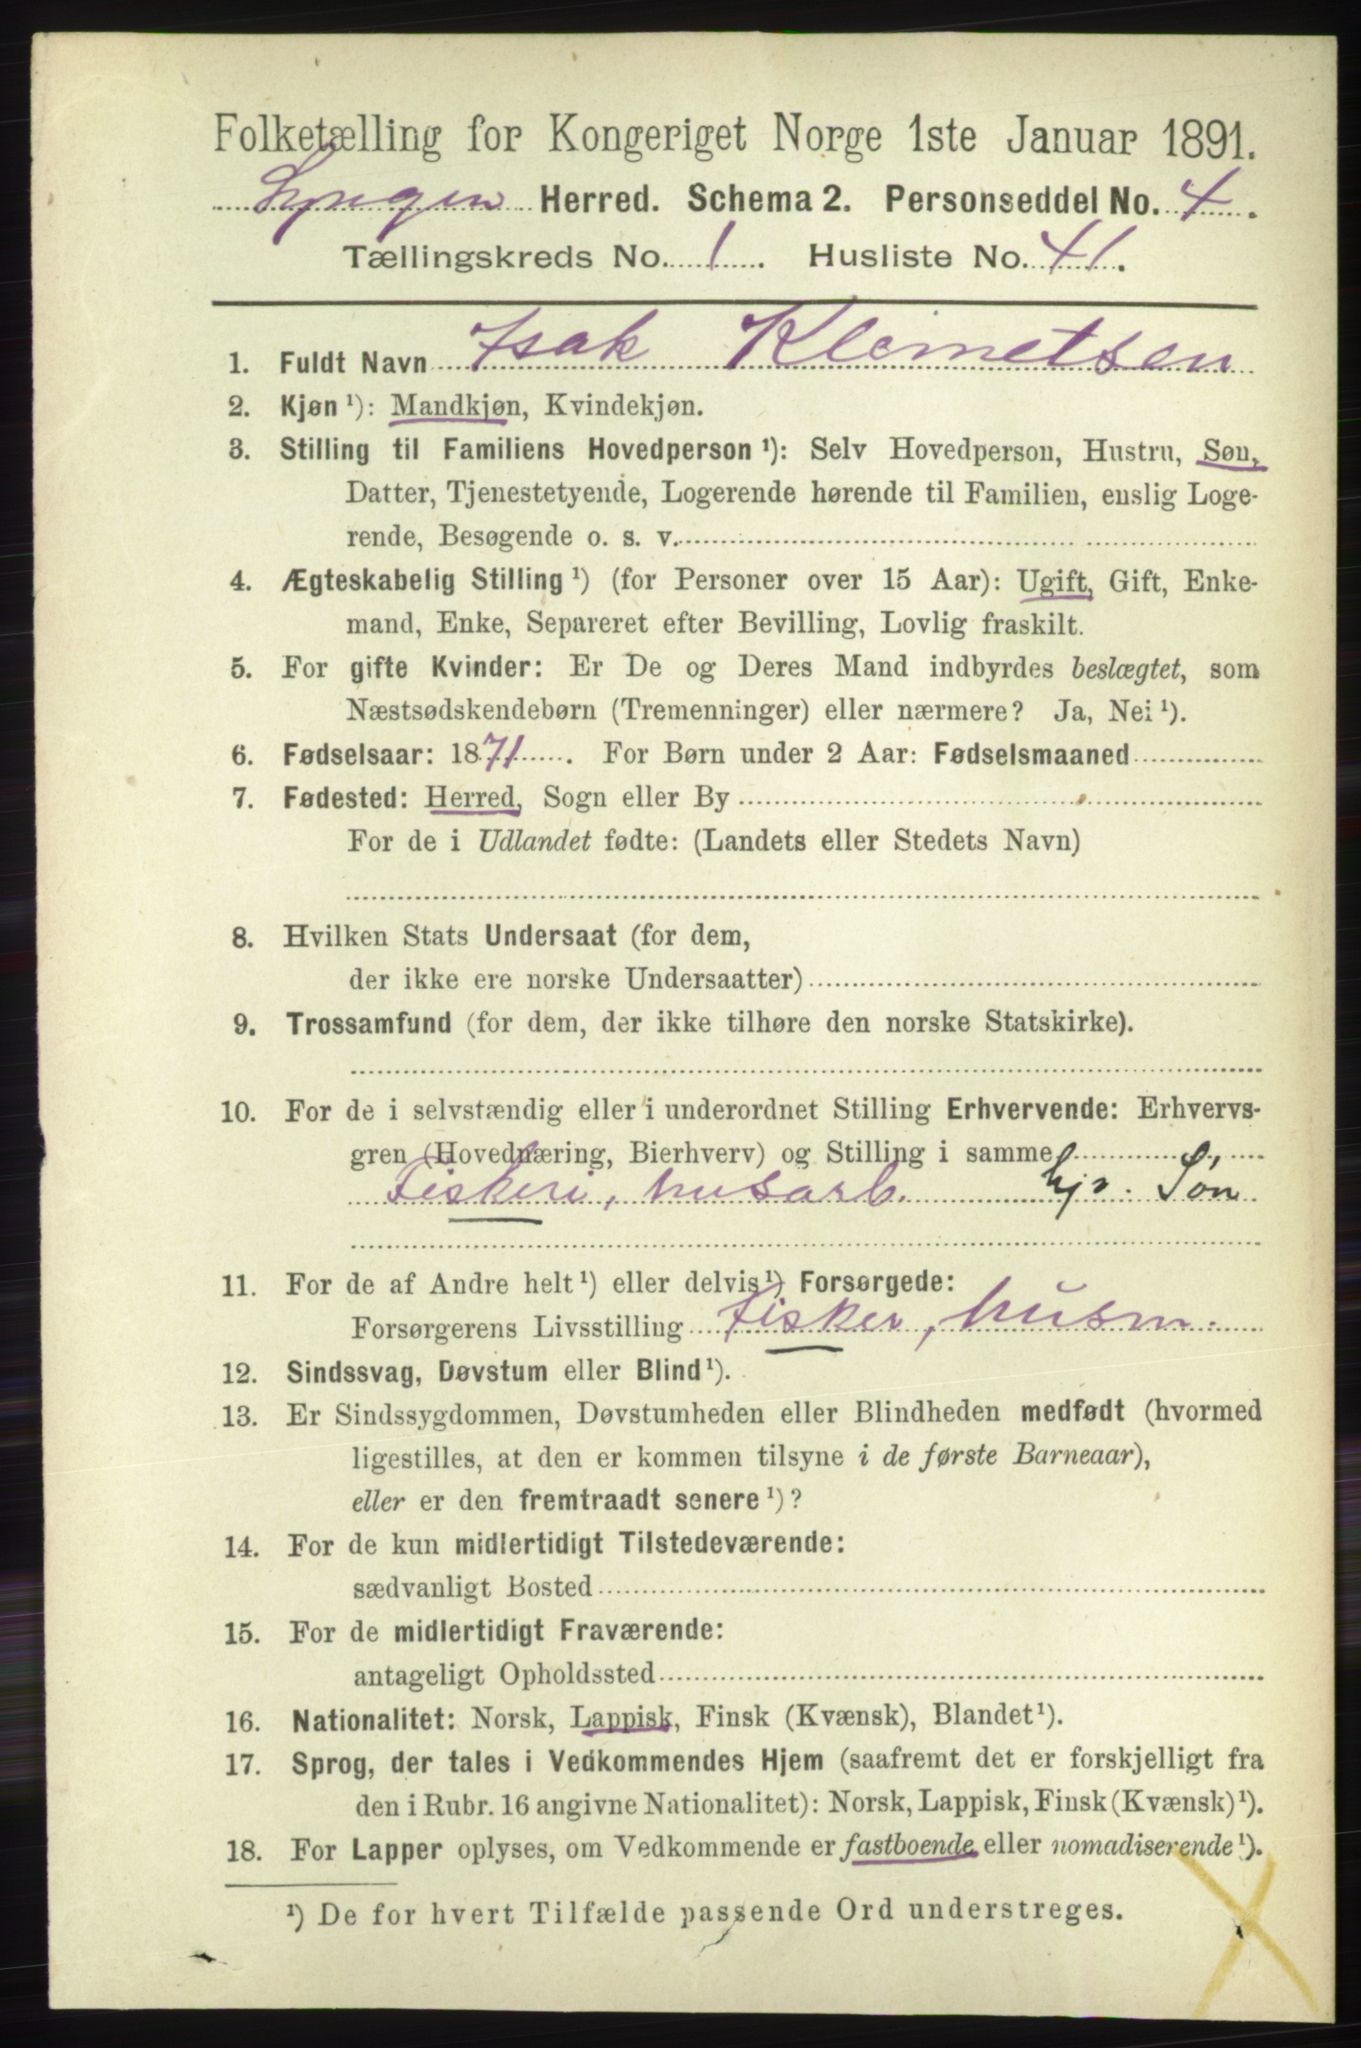 Folketælling for Kongeriget Norge 1ste Januar 1891.
Lyngen Herred. Schema 2. Personseddel No. 4.
Tællingskreds No. 1. Husliste No. 41.
1. Fuldt Navn Isak Klemetsen
2. Kjøn ¹): Mandkjøn, Kvindekjøn.
3. Stilling til Familiens Hovedperson ¹): Selv Hovedperson, Hustru, Søn,
Datter, Tjenestetyende, Logerende hørende til Familien, enslig Loge-
rende, Besøgende o. s. v.
4. Ægteskabelig Stilling ¹) (for Personer over 15 Aar): Ugift, Gift, Enke-
mand, Enke, Separeret efter Bevilling, Lovlig fraskilt.
5. For gifte Kvinder: Er De og Deres Mand indbyrdes beslægtet, som
Næstsødskendebørn (Tremenninger) eller nærmere? Ja, Nei ¹).
6. Fødselsaar: 1871. For Børn under 2 Aar: Fødselsmaaned
7. Fødested: Herred, Sogn eller By
For de i Udlandet fødte: (Landets eller Stedets Navn)
8. Hvilken Stats Undersaat (for dem,
der ikke ere norske Undersaatter)
9. Trossamfund (for dem, der ikke tilhøre den norske Statskirke).
10. For de i selvstændig eller i underordnet Stilling Erhvervende: Erhvervs-
gren (Hovednæring, Bierhverv) og Stilling i samme
Fiskeri, husarb. hjs. Søn
11. For de af Andre helt ¹) eller delvis ¹) Forsørgede:
Forsørgerens Livsstilling Fisker, husm.
12. Sindssvag, Døvstum eller Blind ¹).
13. Er Sindssygdommen, Døvstumheden eller Blindheden medfødt (hvormed
ligestilles, at den er kommen tilsyne i de første Barneaar),
eller er den fremtraadt senere ¹)?
14. For de kun midlertidigt Tilstedeværende:
sædvanligt Bosted
15. For de midlertidigt Fraværende:
antageligt Opholdssted
16. Nationalitet: Norsk, Lappisk, Finsk (Kvænsk), Blandet ¹).
17. Sprog, der tales i Vedkommendes Hjem (saafremt det er forskjelligt fra
den i Rubr. 16 angivne Nationalitet): Norsk, Lappisk, Finsk (Kvænsk) ¹).
18. For Lapper oplyses, om Vedkommende er fastboende eller nomadiserende ¹).
¹) De for hvert Tilfælde passende Ord understreges.